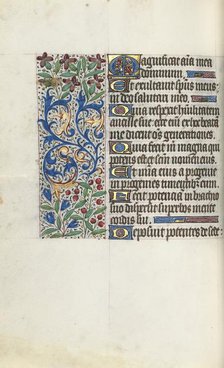 Magnificat aīa mea
dominum.
Et exultavit spūs meus:
in deo salutari meo.
Quia respexit humilitatem
ancille sue: ecce enim ex hoc bea
dicent oēs generationes.
Quia fecit michi magna qui
potens est: et sanctum nomen eius.
Et mīa eius a progenie
in progenies timentibus eum.
Fecit potentiam in brachio
suo: dispersit superbos mente
cordis sui.
Deposuit potentes de sede: